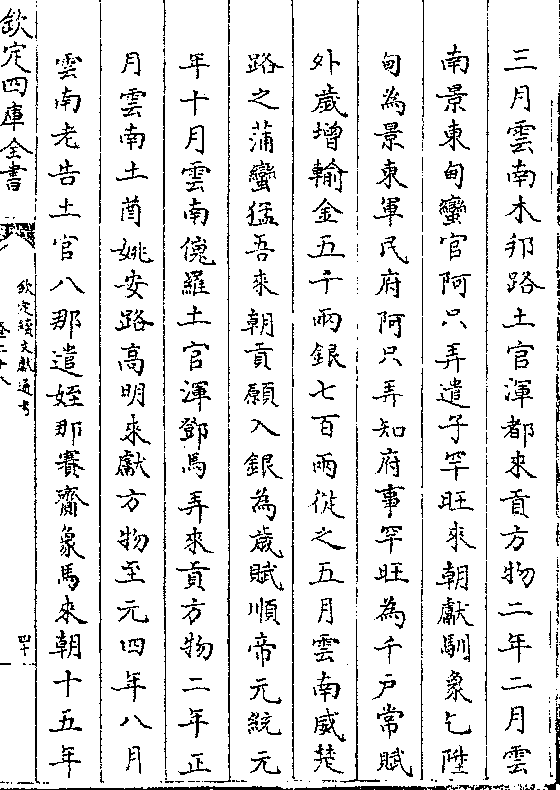 三月雲南木邦路土官渾都來貢方物二年二月雲
南景東甸蠻官阿只弄遣子罕旺來朝獻馴象乞陞
甸為景東軍民府阿只弄知府事罕旺為千戶常賦
外歲增輸金五千兩銀七百兩從之五月雲南威楚
路之蒲蠻猛吾來朝貢願入銀為歲賦順帝元統元
年十月雲南傀羅土官渾鄧馬弄來貢方物二年正
月雲南土酋姚安路高明來獻方物至元四年八月
雲南老告土官八那遣姪那賽齎象馬來朝十五年
欽定四庫全書
欽定續文獻通考
卷二十八
四十